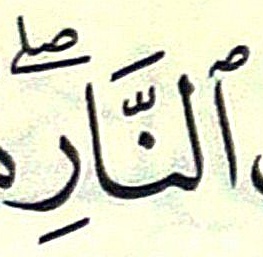 ٱلنَّارِۖ